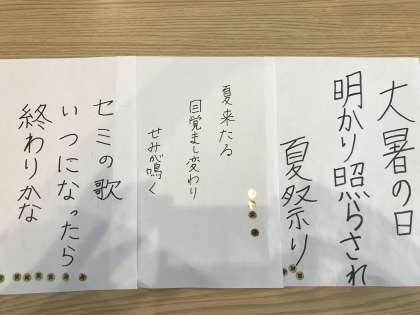 大暑の日
明かり照らされ
夏祭り
夏来たる
目覚まし変わり
せみが鳴く
セミの歌
いつになったら
終わりかな